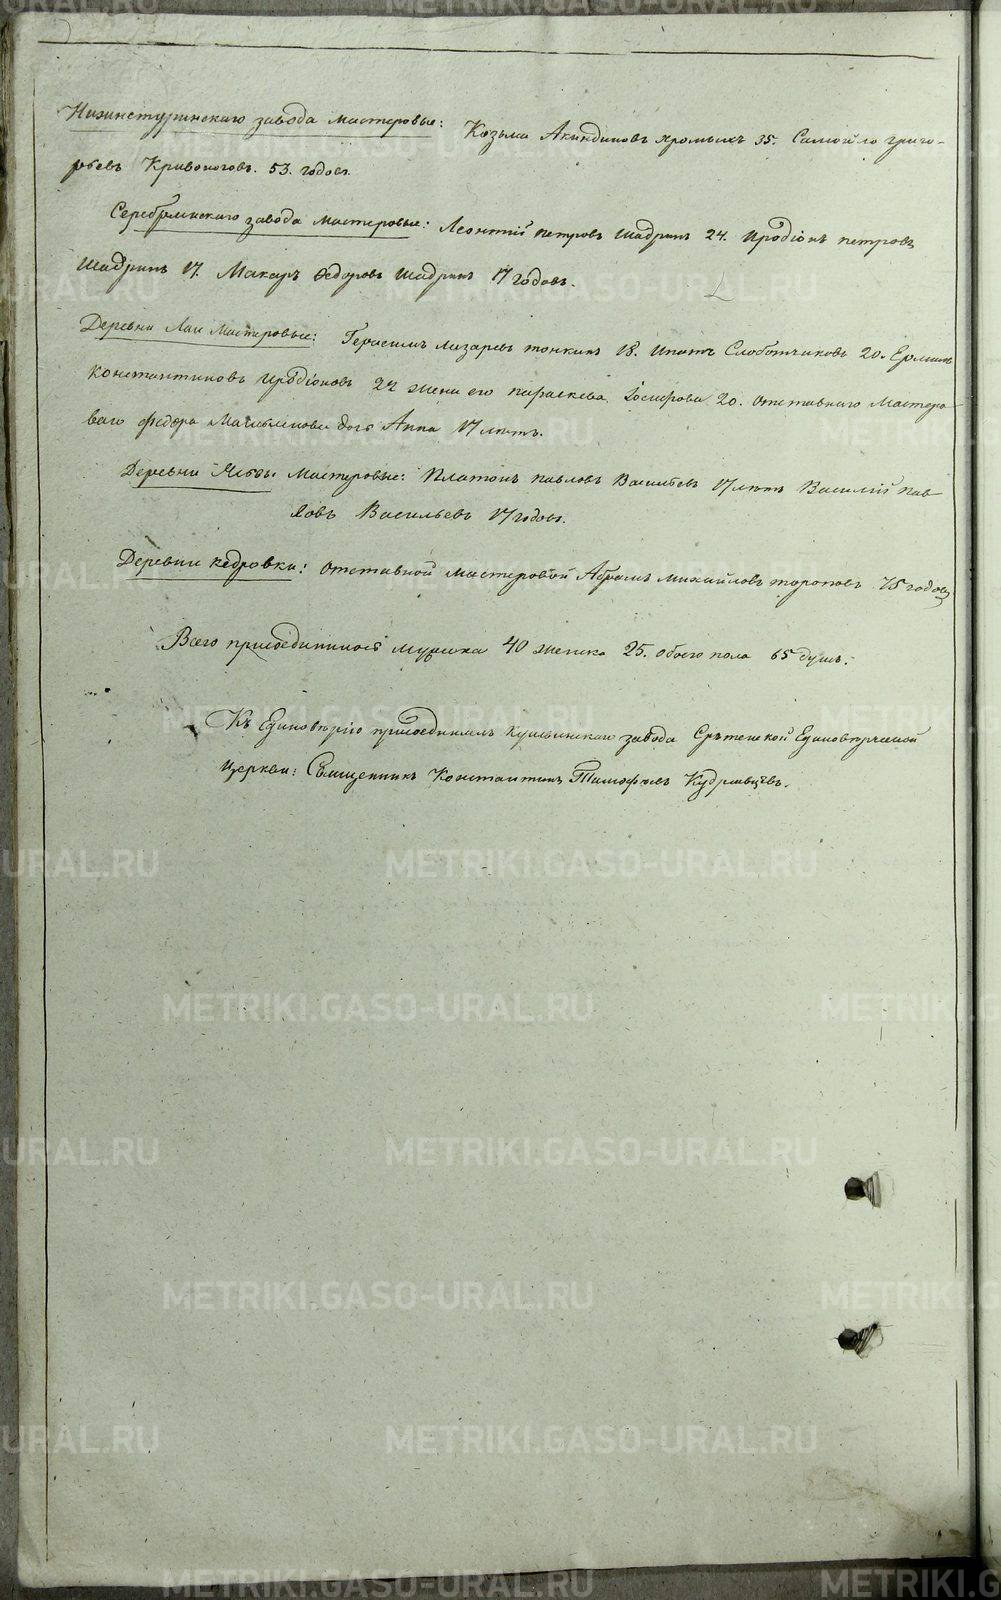 Нижнетуринскаго завода мастеровые: Козьма Акиндиновъ Хромыхъ 35. Самойло Григо-
рьевъ Кривоноговъ. 53. годовъ.
Серебрянскаго завода мастеровые: Леонтий Петровъ Шадринъ 24. Иродіонъ Петровъ
Шадринъ 17. Макаръ Ѳедоровъ Шадринъ 17 годовъ.
Деревни Лаи Мастеровые: Герасимъ Лазаревъ 18. Ипатъ Слобатчиковъ 20. Ермилъ
Константиновъ Иродіоновъ 22 жена его Параскева 20. Отставнаго Мастеро-
ваго Федора дочь Анна 17 летъ.
Деревни Мастеровые: Платонъ Павловъ Васильевъ 17 летъ Василий Пав-
ловъ Васильевъ 17 годовъ.
Деревни Кедровки: Отставной мастеровой Абрамъ Михайловъ Тороповъ 75 годовъ
Всего присоединилось мужска 40 женска 25. обоего пола 65 душъ.
Къ Единоверію присоединилъ Кушвинскаго завода Сретенской Единоверческой
Церкви: Священникъ Константинъ Тимофеевъ Кудрявцевъ.
METRIKI.GASO-URAL.RU